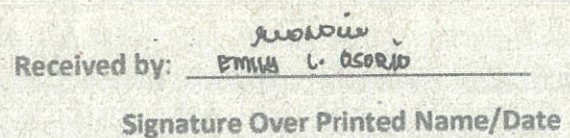 Received by: EMILY L. OSORIO
Signature Over Printed Name/Date